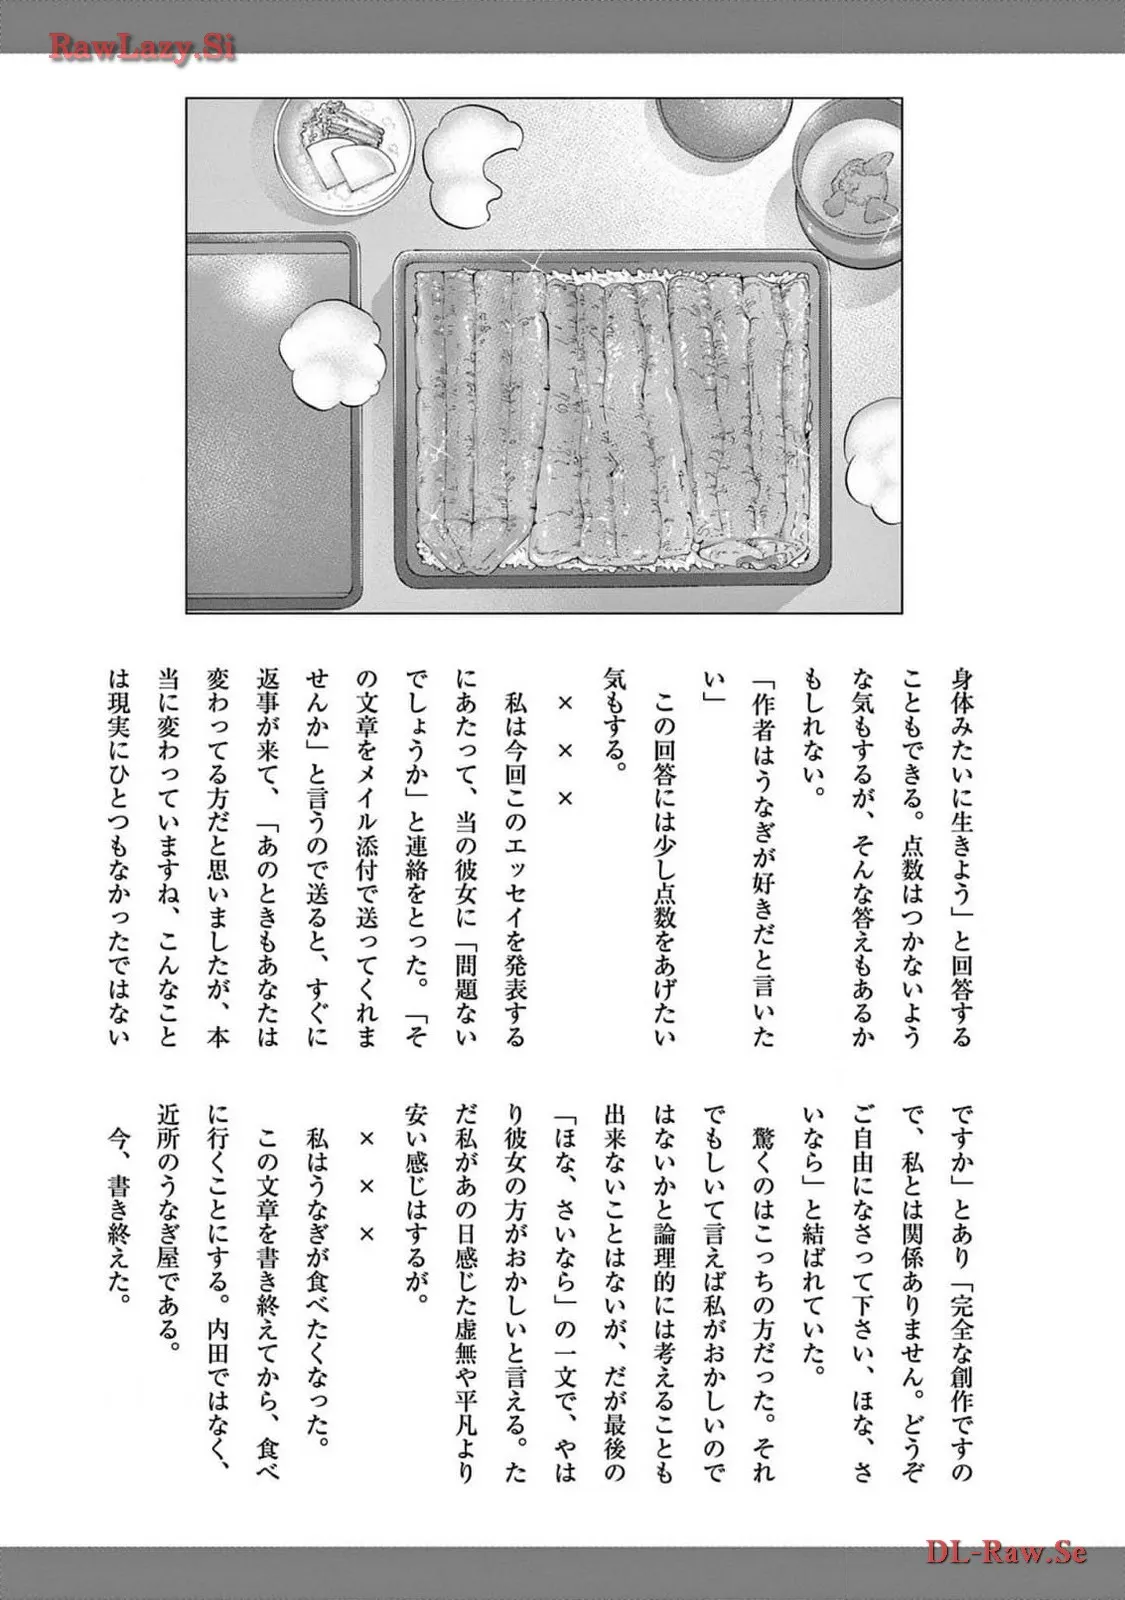 RawLazy.Si
身体みたいに生きよう」と回答する
こともできる。点数はつかないよう
な気もするが、そんな答えもあるか
もしれない。
「作者はうなぎが好きだと言いた
い」
この回答には少し点数をあげたい
気もする。
×××
私は今回このエッセイを発表する
にあたって、当の彼女に「問題ない
でしょうか」と連絡をとった。「そ
の文章をメイル添付で送ってくれま
せんか」と言うので送ると、すぐに
返事が来て、「あのときもあなたは
変わってる方だと思いましたが、本
当に変わっていますね、こんなこと
は現実にひとつもなかったではない
ですか」とあり「完全な創作ですの
で、私とは関係ありません。どうぞ
ご自由になさって下さい、ほな、さ
いなら」と結ばれていた。
驚くのはこっちの方だった。それ
でもしいて言えば私がおかしいので
はないかと論理的には考えることも
出来ないことはないが、だが最後の
「ほな、さいなら」の一文で、やは
り彼女の方がおかしいと言える。た
だ私があの日感じた虚無や平凡より
安い感じはするが。
×××
私はうなぎが食べたくなった。
この文章を書き終えてから、食べ
に行くことにする。内田ではなく、
近所のうなぎ屋である。
今、書き終えた。
DL-Raw.Se